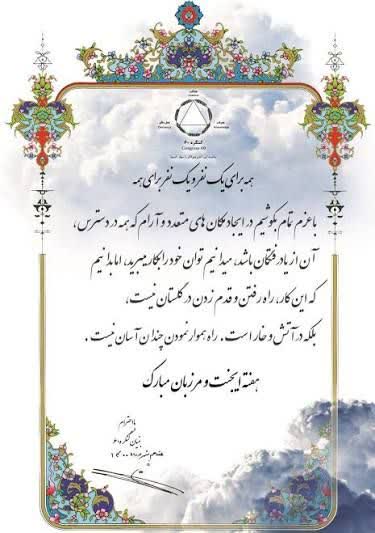 کنگره ۶۰
Congress 60
همه برای یک نفر و یک نفر برای همه
با عزم تمام بکوشیم در ایجاد مکان های متعدد و آرام که همه در دسترس،
آن از یاد رفتگان باشد، میدانیم توان خود را بکار ببرید، اما بدانیم
که این کار، راه رفتن و قدم زدن در گلستان نیست،
بلکه در آتش و خار است. راه هموار نمودن چندان آسان نیست.
هفته ایجنت و مرزبان مبارک
با احترام
بنیان کنگره ۶۰